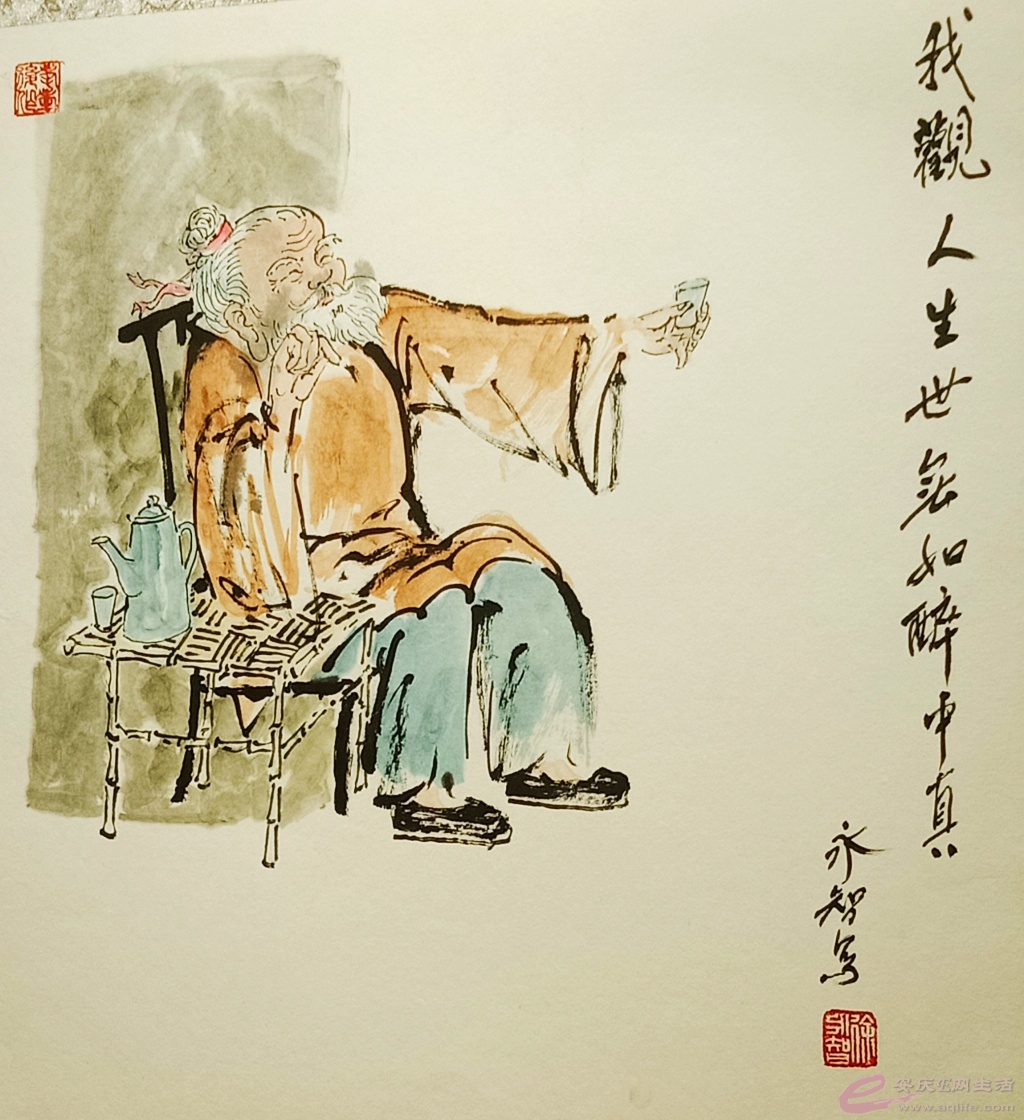 我觀人生世無如醉中真
永智写
徐永智
安庆E网生活
www.aqlife.com